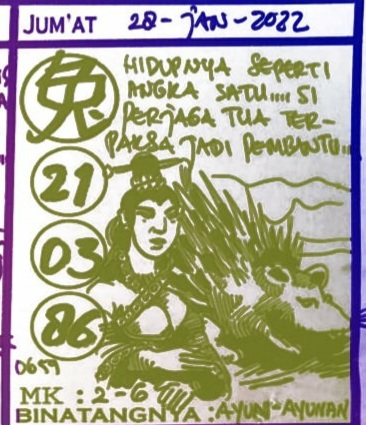 JUM'AT 28-JAN-2022
兔
HIDUPNYA SEPERTI
ANGKA SATU.... SI
PERJAGA TUA TER-
PAKSA JADI PEMBANTU..
21
03
86
0659
MK : 2-6
BINATANGNYA : AYUN-AYUNAN